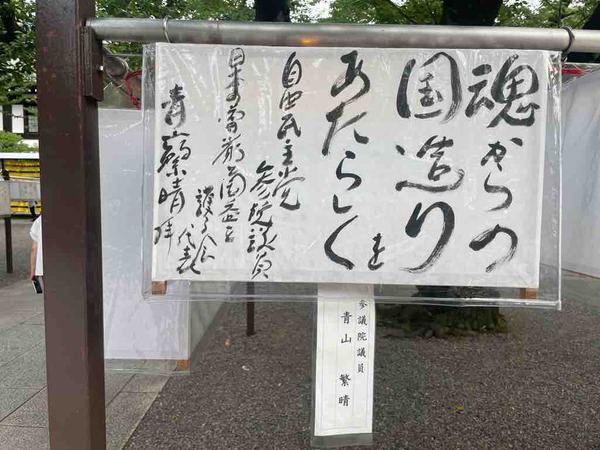 魂からの
国造りを
あたらしく
自由民主党
参院議員
日本の尊厳と国益を
護る会代表
青山繁晴 拝
参議院議員
青山 繁晴